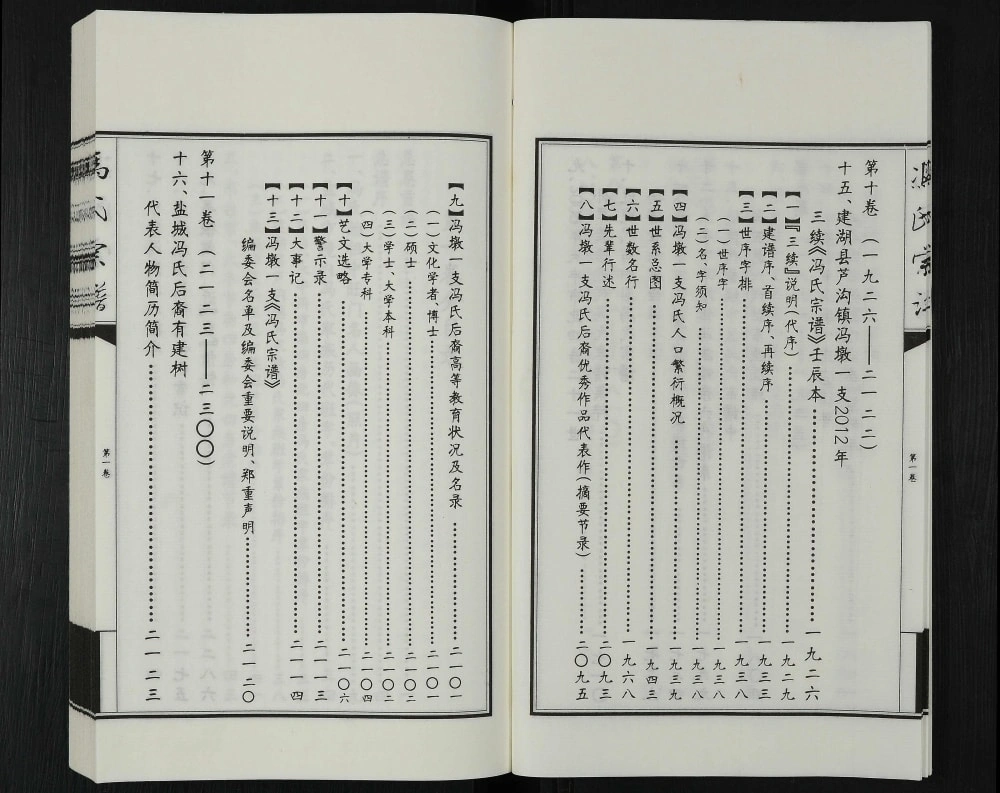 第十卷 (一九二六——二一二二)
十五、建湖县芦沟镇冯墩一支2012年
三续《冯氏宗谱》壬辰本……………………一九二六
【一】『三续』说明(代序)……………………一九二九
【二】建谱序、首续序、再续序……………………一九三三
【三】世序字排……………………一九三八
(一)世序字……………………一九三八
(二)名、字须知……………………一九三八
【四】冯墩一支冯氏人口繁衍概况……………………一九三九
【五】世系总图……………………一九四三
【六】世数名行……………………一九六八
【七】先辈行述……………………二〇九三
【八】冯墩一支冯氏后裔优秀作品代表作(摘要节录)……………………二〇九五
第一卷
【九】冯墩一支冯氏后裔高等教育状况及名录……………………二一〇一
(一)文化学者、博士……………………二一〇一
(二)硕士……………………二一〇二
(三)学士、大学本科……………………二一〇二
(四)大学专科……………………二一〇四
【十】艺文选略……………………二一〇六
【十一】警示录……………………二一一三
【十二】大事记……………………二一一四
【十三】冯墩一支《冯氏宗谱》
编委会名单及编委会重要说明、郑重声明……………………二一二〇
第十一卷 (二一二三——二三〇〇)
十六、盐城冯氏后裔有建树
代表人物简历简介……………………二一二三
冯氏宗谱
第一卷